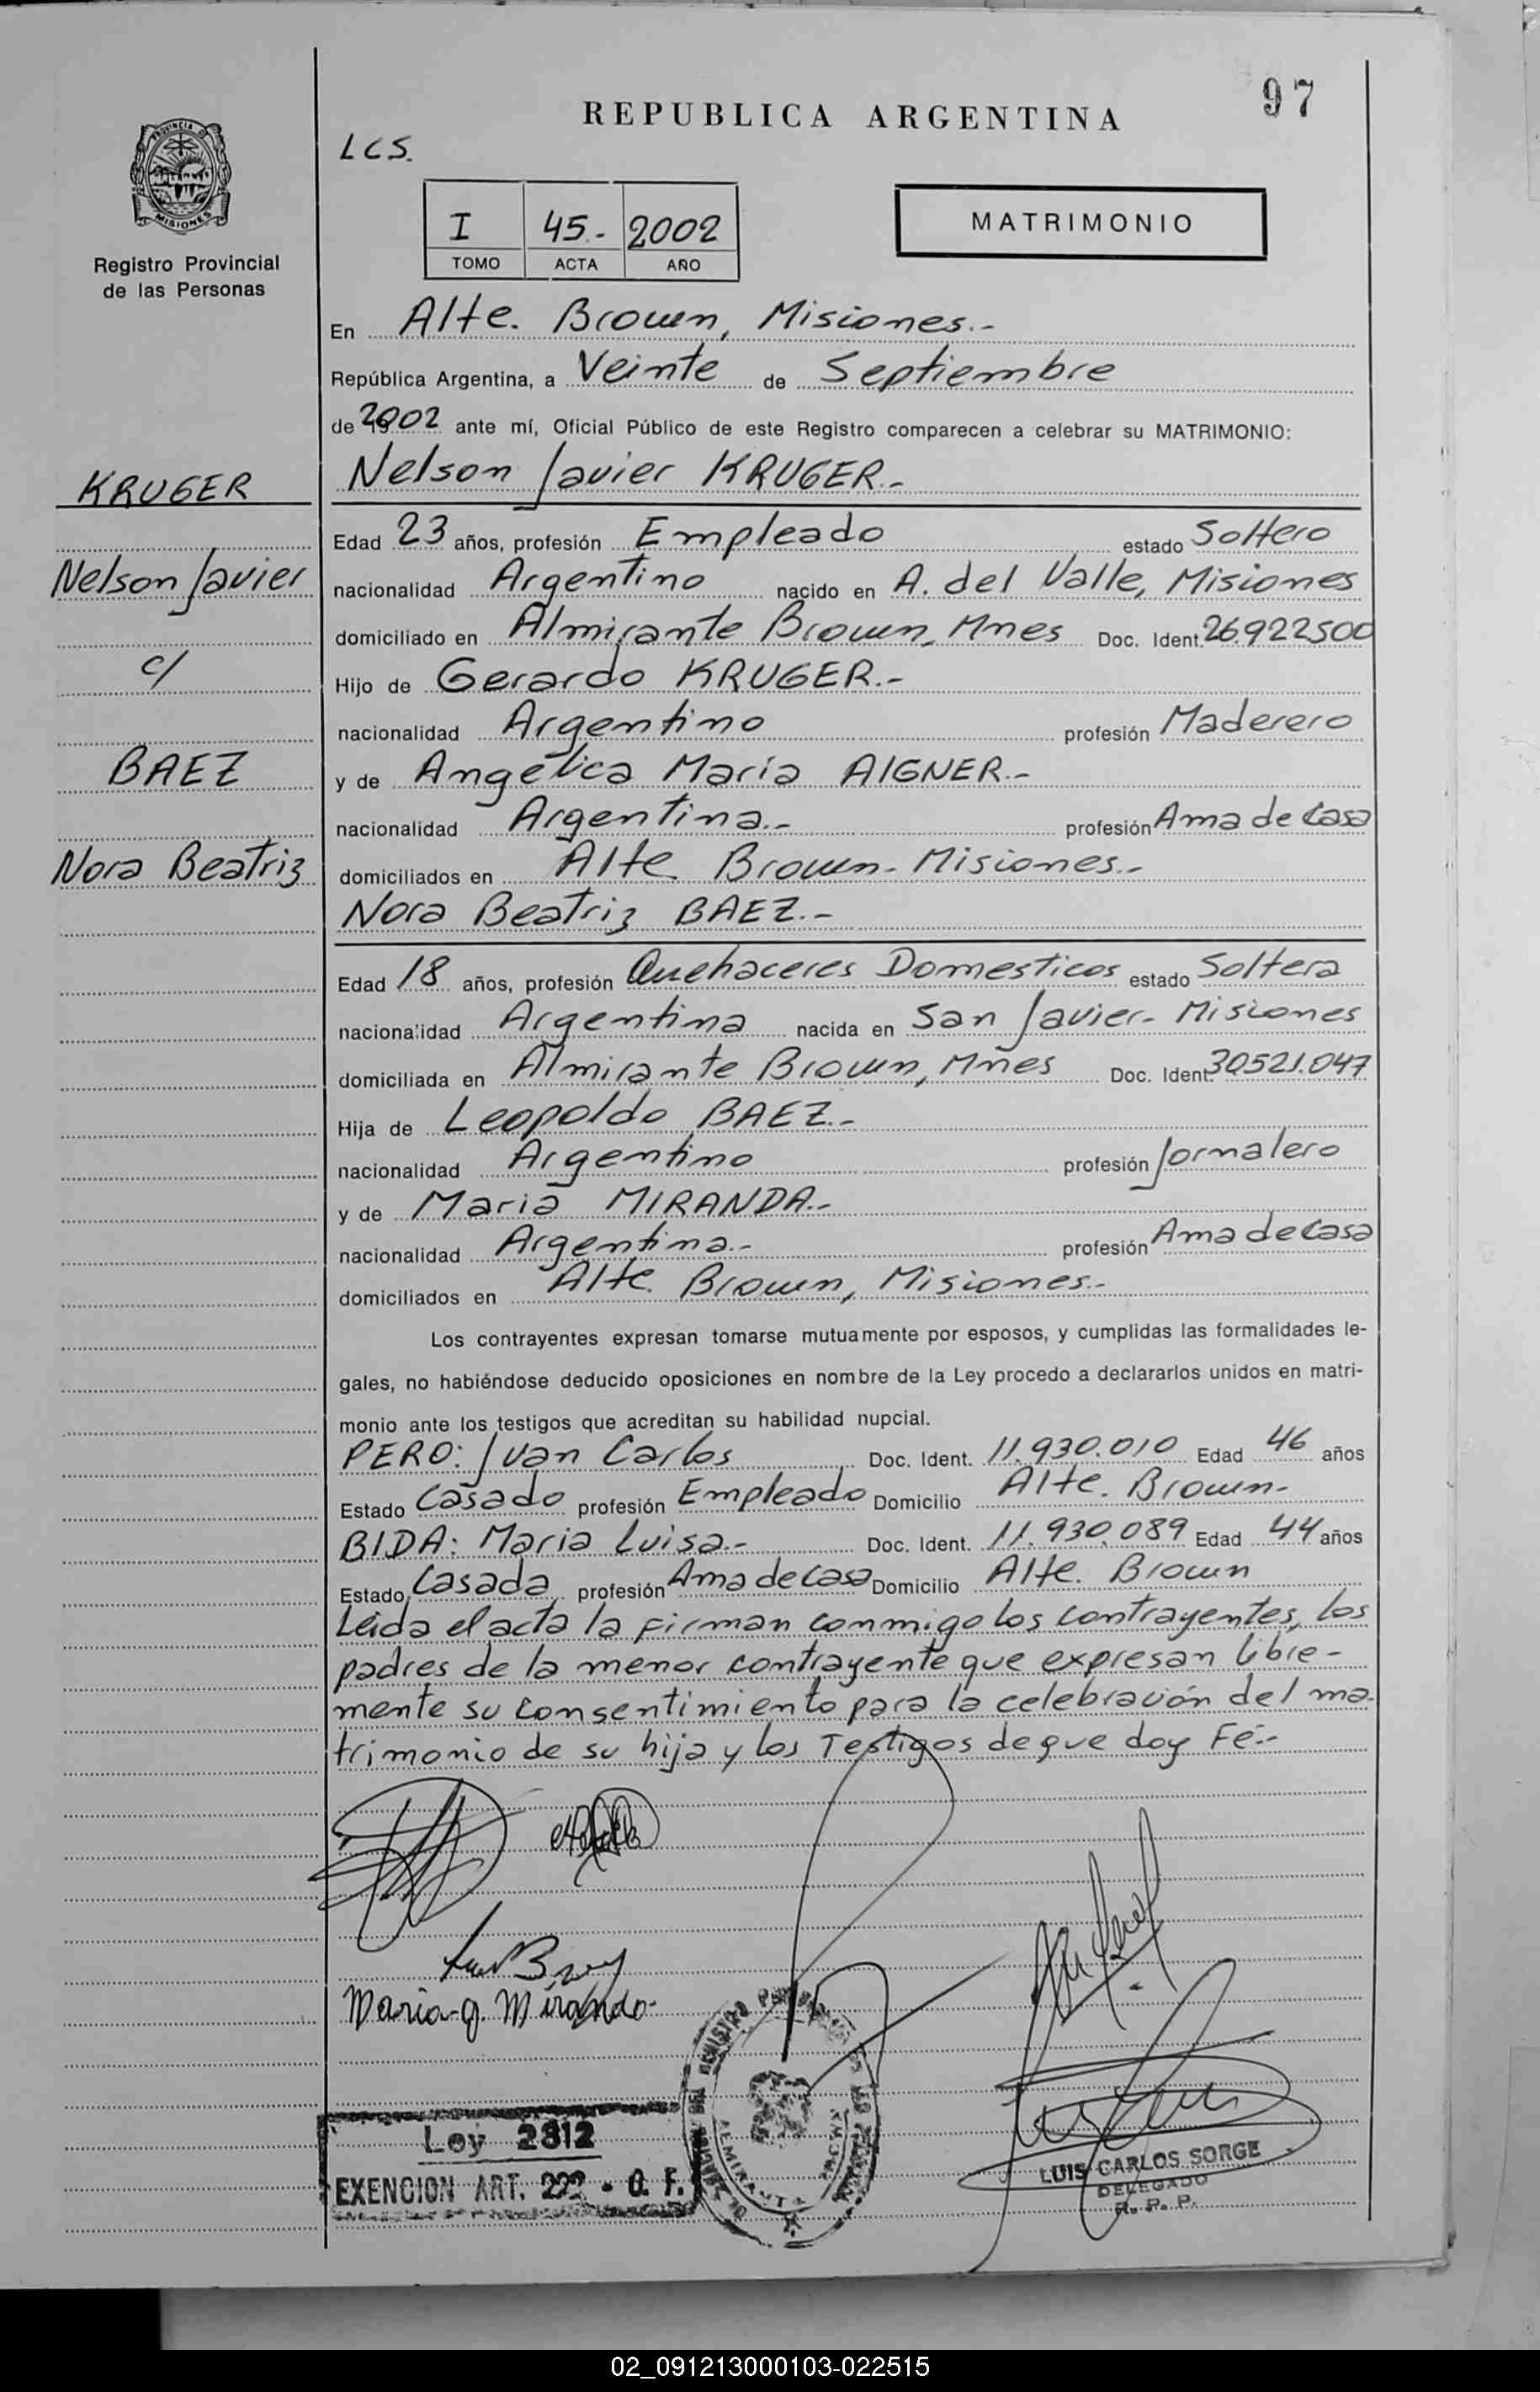 97
REPUBLICA ARGENTINA
LCS.
PROVINCIA DE
MISIONES
Registro Provincial
de las Personas
I 45.- 2002
TOMO ACTA AÑO
MATRIMONIO
En Alte. Brown, Misiones.-
República Argentina, a Veinte de Septiembre
de 2002 ante mí, Oficial Público de este Registro comparecen a celebrar su MATRIMONIO:
Nelson Javier KRUGER.-
KRUGER
Nelson Javier
c/
BAEZ
Nora Beatriz
Edad 23 años, profesión Empleado estado Soltero
nacionalidad Argentino nacido en A. del Valle, Misiones
domiciliado en Almirante Brown, Mnes Doc. Ident. 26.922500
Hijo de Gerardo KRUGER.-
nacionalidad Argentino profesión Maderero
y de Angélica María AIGNER.-
nacionalidad Argentina.- profesión Ama de Casa
domiciliados en Alte Brown- Misiones.-
Nora Beatriz BAEZ.-
Edad 18 años, profesión Quehaceres Domesticos estado Soltera
nacionalidad Argentina nacida en San Javier- Misiones
domiciliada en Almirante Brown, Mnes Doc. Ident. 30521.047
Hija de Leopoldo BAEZ.-
nacionalidad Argentino profesión Jornalero
y de Maria MIRANDA.-
nacionalidad Argentina.- profesión Ama de Casa
domiciliados en Alte. Brown, Misiones.-
Los contrayentes expresan tomarse mutuamente por esposos, y cumplidas las formalidades le-
gales, no habiéndose deducido oposiciones en nombre de la Ley procedo a declararlos unidos en matri-
monio ante los testigos que acreditan su habilidad nupcial.
PERO: Juan Carlos Doc. Ident. 11.930.010 Edad 46 años
Estado Casado profesión Empleado Domicilio Alte. Brown-
BIDA: Maria Luisa.- Doc. Ident. 11.930.089 Edad 44 años
Estado Casada profesión Ama de Casa Domicilio Alte. Brown
Leida el acta la firman conmigo los contrayentes, los
padres de la menor contrayente que expresan libre-
mente su consentimiento para la celebración del ma-
trimonio de su hija y los Testigos de que doy Fé.-
Maria-g. Mirando-
Ley 2812
EXENCION ART. 222 - C. F.
LUIS CARLOS SORGE
DELEGADO
R. P. P.
02_091213000103-022515